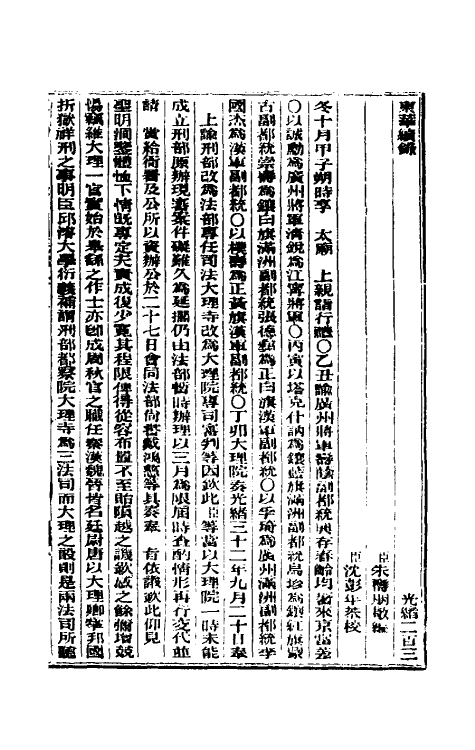 東華續錄
光緒二百三
臣朱壽朋敬編
臣沈彭年恭校
冬十月甲子朔時享　太廟　上親詣行禮〇乙丑諭廣州將軍壽蔭副都統興存春齡均著來京當差
〇以誠勳為廣州將軍清銳為江寧將軍〇丙寅以塔克什訥為鑲藍旗滿洲副都統烏珍為鑲紅旗蒙
古副都統崇壽為鑲白旗滿洲副都統張德彝為正白旗漢軍副都統〇以孚琦為廣州滿洲副都統李
國杰為漢軍副都統〇以樸壽為正黃旗漢軍副都統〇丁卯大理院奏光緒三十二年九月二十日奉
上諭刑部改為法部專任司法大理寺改為大理院專司審判等因欽此臣等當以大理院一時未能
成立刑部原辦現審案件礙難久為延擱仍由法部暫時辦理以三月為限屆時查酌情形再行交代並
請　賞給衙署及公所以資辦公於二十七日會同法部尚書戴鴻慈等具奏奉　旨依議欽此仰見
聖明洞鑒體恤下情既專定夫責成復少寬其程限俾得從容布置不至貽隕越之譏欽感之餘彌增兢
惕竊維大理一官實始於皋繇之作士亦即成周秋官之職任秦漢魏晉皆名廷尉唐以大理卿掌邦國
折獄詳刑之事明臣邱濬大學衍義補謂刑部都察院大理寺為三法司而大理之設則是兩法司所聽